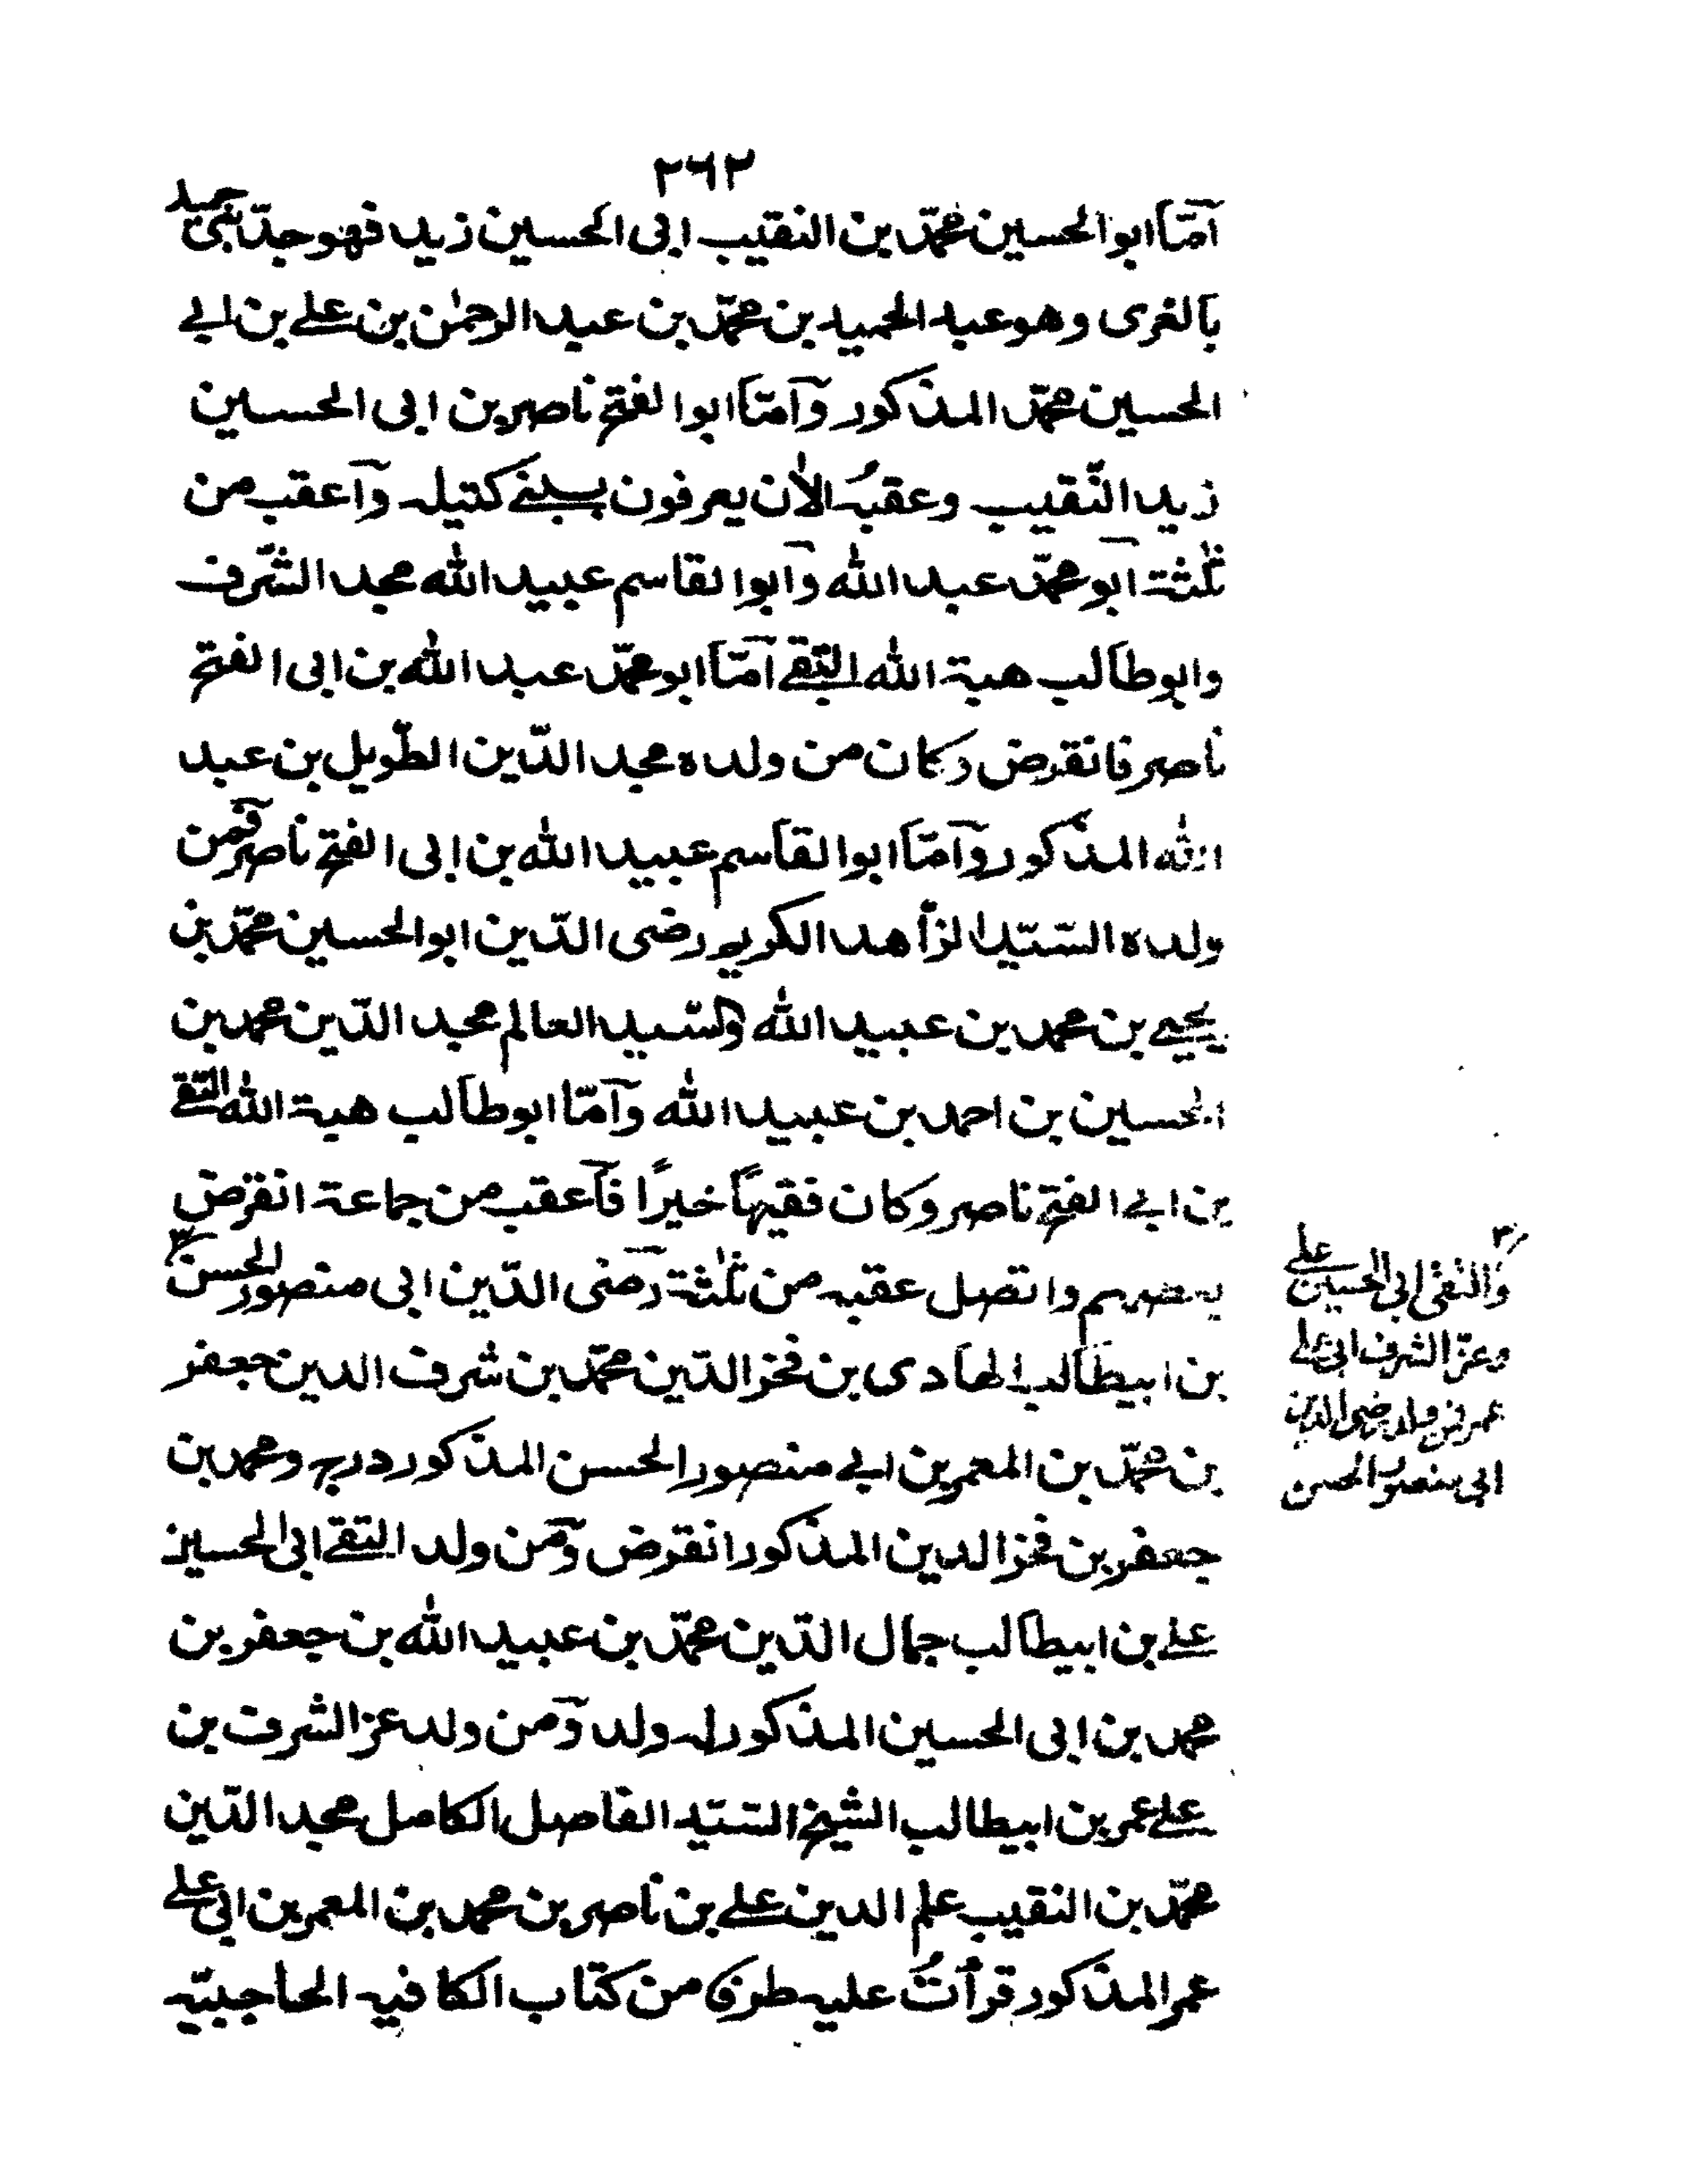 ٢٦٢
اَمّا ابو الحسين محمّد بن النقيب ابى الحسين زيد فهو جدّ بنى حميد
بالغرى وهو عبد الحميد بن محمّد بن عبد الرحمٰن بن علے بن ابے
الحسين محمّد المذكور واَمّا ابو الفتح ناصر بن ابى الحسين
زيد النّقيب وعقبُه الاٰن يعرفون ببنے كتيله واَعقب من
ثلٰثة ابو محمّد عبد الله واَبو القاسم عبيد الله مجد الشّرف
وابو طالب هبة الله التقے اَمّا ابو محمّد عبد الله بن ابى الفتح
ناصر فانقرض وكان من ولده مجد الدّين الطّويل بن عبد
الله المذكور واَمّا ابو القاسم عبيد الله بن ابى الفتح ناصر فمن
ولده السّيّد الزاهد الكريم رضى الدّين ابو الحسين محمّد بن
يحيے بن محمد بن عبيد الله والسّيد العالم مجد الدّين محمد بن
الحسين بن احمد بن عبيد الله واَمّا ابو طالب هبة الله التّقے
بن ابے الفتح ناصر وكان فقيهًا خيرًا فاَعقب من جماعة انقرض
بعضهم واتصل عقبه من ثلٰثة رَضى الدّين ابى منصور الحسن ٣
بن ابيطالب الهادى بن فخر الدّين محمّد بن شرف الدين جعفر
بن محمّد بن المعمر بن ابے منصور الحسن المذكور درج ومحمد بن
جعفر بن فخر الدين المذكور انقرض ومن ولد التقے ابى الحسين
علے بن ابيطالب جمال الدّين محمّد بن عبيد الله بن جعفر بن
محمد بن ابى الحسين المذكور له ولد ومن ولد عز الشرف بن
علے عمر بن ابيطالب الشيخ السّيّد الفاضل الكامل مجد الدّين
محمّد بن النقيب علم الدين علے بن ناصر بن محمد بن المعمر بن ابى علے
عمر المذكور قرأتُ عليه طرفا من كتاب الكافيه الحاجبيّه
٣
والتقى ابى الحسين علے
وعزّ الشرف ابى علے
عمر فمن ولد رضى الدين
ابى منصور الحسن